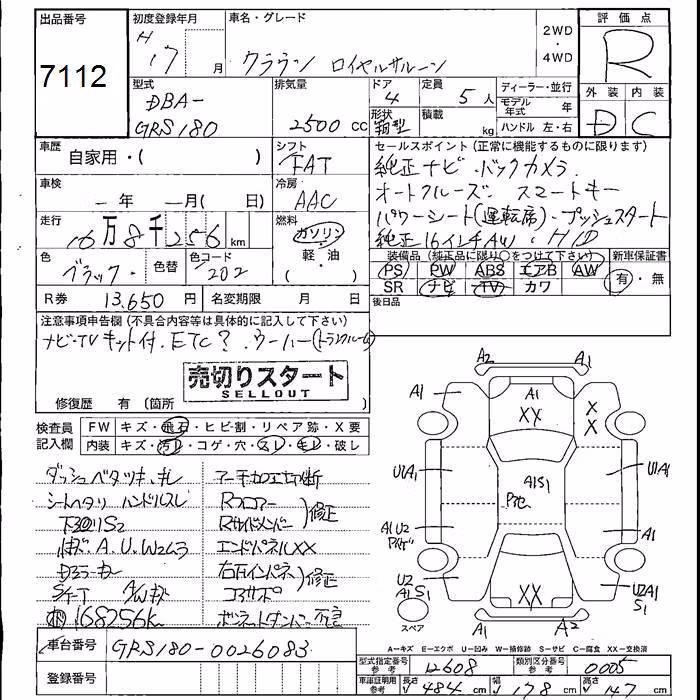 出品番号
7112
初度登録年月
H
17 月
車名・グレード
クラウン ロイヤルサルーン
2WD
・
4WD
評価点
R
型式
DBA-
GRS180
排気量
2500 cc
ドア
4
定員
5 人
形状
箱型
積載
kg
ディーラー・並行
モデル年式 年
ハンドル 左・右
外装 内装
D C
車歴
自家用・( )
シフト
FAT
セールスポイント (正常に機能するものに限ります)
純正ナビ・バックカメラ
オートクルーズ スマートキー
パワーシート(運転席)・プッシュスタート
純正16インチAW・HID
車検
― 年 ―月( 日)
冷房
AAC
走行
16万8千256 km
燃料
ガソリン
・
軽・油
( )
色
ブラック・
色替
色コード
202
装備品 (純正品に限り○をつけて下さい)
PS PW ABS エアB AW
SR ナビ TV カワ
新車保証書
有・無
R券 13,650 円
名変期限 月 日
後日品
注意事項申告欄 (不具合内容等は具体的に記入して下さい)
ナビ・TVキット付. ETC?. ウーハー(トランクルーム)
売切りスタート
SELLOUT
修復歴 有 (箇所 )
検査員
記入欄
FW キズ・飛石・ヒビ割・リペア跡・X要
内装 キズ・汚れ・コゲ・穴・スレ・モレ・破レ
ダッシュベタツキ.キレ
シートヘタリ ハンドルスレ
下回りS2
キズ. A. U. W2.3
AWキズ
168256k
Rフロアー
Rサイドメンバー
修正
エンドパネルXX
右Rインパネ
修正
コアサポ
車台番号 GRS180-0026083
登録番号
A2 A1
A1 A1
XX
X
X
U1A1 A1S1 U1A1
A1U2 A1
U2
A1S1 XX U2A1
S1
スペア
A1 A2
A―キズ E―エクボ U―凹み W―補修跡 S―サビ C―腐食 XX―交換済
型式指定番号
参考
12608
類別区分番号
参考
0005
車庫証明用
参考
長さ
484 cm
幅
178 cm
高さ
147 cm